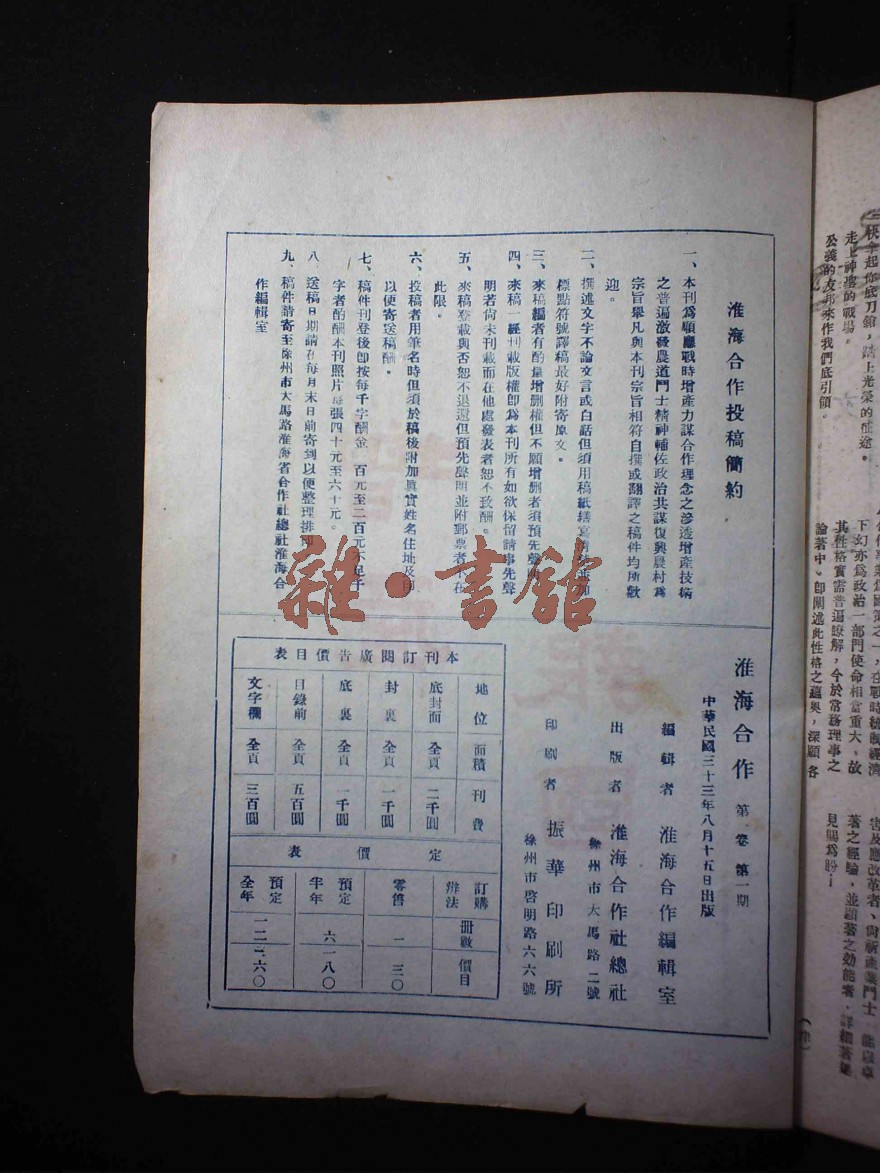 淮海合作投稿簡約
一、本刊爲順應戰時增產力謀合作理念之滲透增產技術
之普遍激發農道鬥士精神輔佐政治共謀復興農村爲
宗旨舉凡與本刊宗旨相符自撰或翻譯之稿件均所歡
迎。
二、撰述文字不論文言或白話但須用稿紙繕寫
標點符號譯稿最好附寄原文。
三、來稿編者有酌量增刪權但不願增刪者須預先聲明
四、來稿一經刊載版權卽爲本刊所有如欲保留請事先聲
明若尙未刊載而在他處發表者恕不致酬。
五、來稿登載與否恕不退還但預先聲明並附郵票者不在
此限。
六、投稿者用筆名時但須於稿後附加眞實姓名住址及
以便寄送稿酬。
七、稿件刊登後卽按每千字酬金 百元至二百元不足千
字者酌酬本刊照片每張四十元至六十元。
八、送稿日期請在每月末日前寄到以便整理排印
九、稿件請寄至徐州市大馬路淮海省合作社總社淮海合
作編輯室
淮海合作 第一卷 第一期
中華民國三十三年八月十五日出版
編輯者 淮海合作編輯室
出版者 淮海合作社總社
徐州市大馬路二號
印刷者 振華印刷所
徐州市啓明路六六號
本刊訂閱廣告價目表
地位 面積 刊費
底封面 全頁 二千圓
封裏 全頁 一千圓
底裏 全頁 一千圓
目錄前 全頁 五百圓
文字欄 全頁 三百圓
定價表
訂購辦法 冊數 價目
零售 一 三〇
預定半年 六 一八〇
預定全年 一二 三六〇
雜·書館
快拿起你底刀鎗，踏上光榮的征途。
走上神聖的戰場。
公義的友邦來作我們底引領。
之一，在戰時統制經濟
下幻亦爲政治一部門使命相當重大，故
其性格實需普遍瞭解，今於常務理事之
論著中，卽闡述此性格之蘊奧，深願各
害及應改革者、尙祈產業鬥士
著之經驗，並顯著之効能者，詳細著述
見賜爲盼！